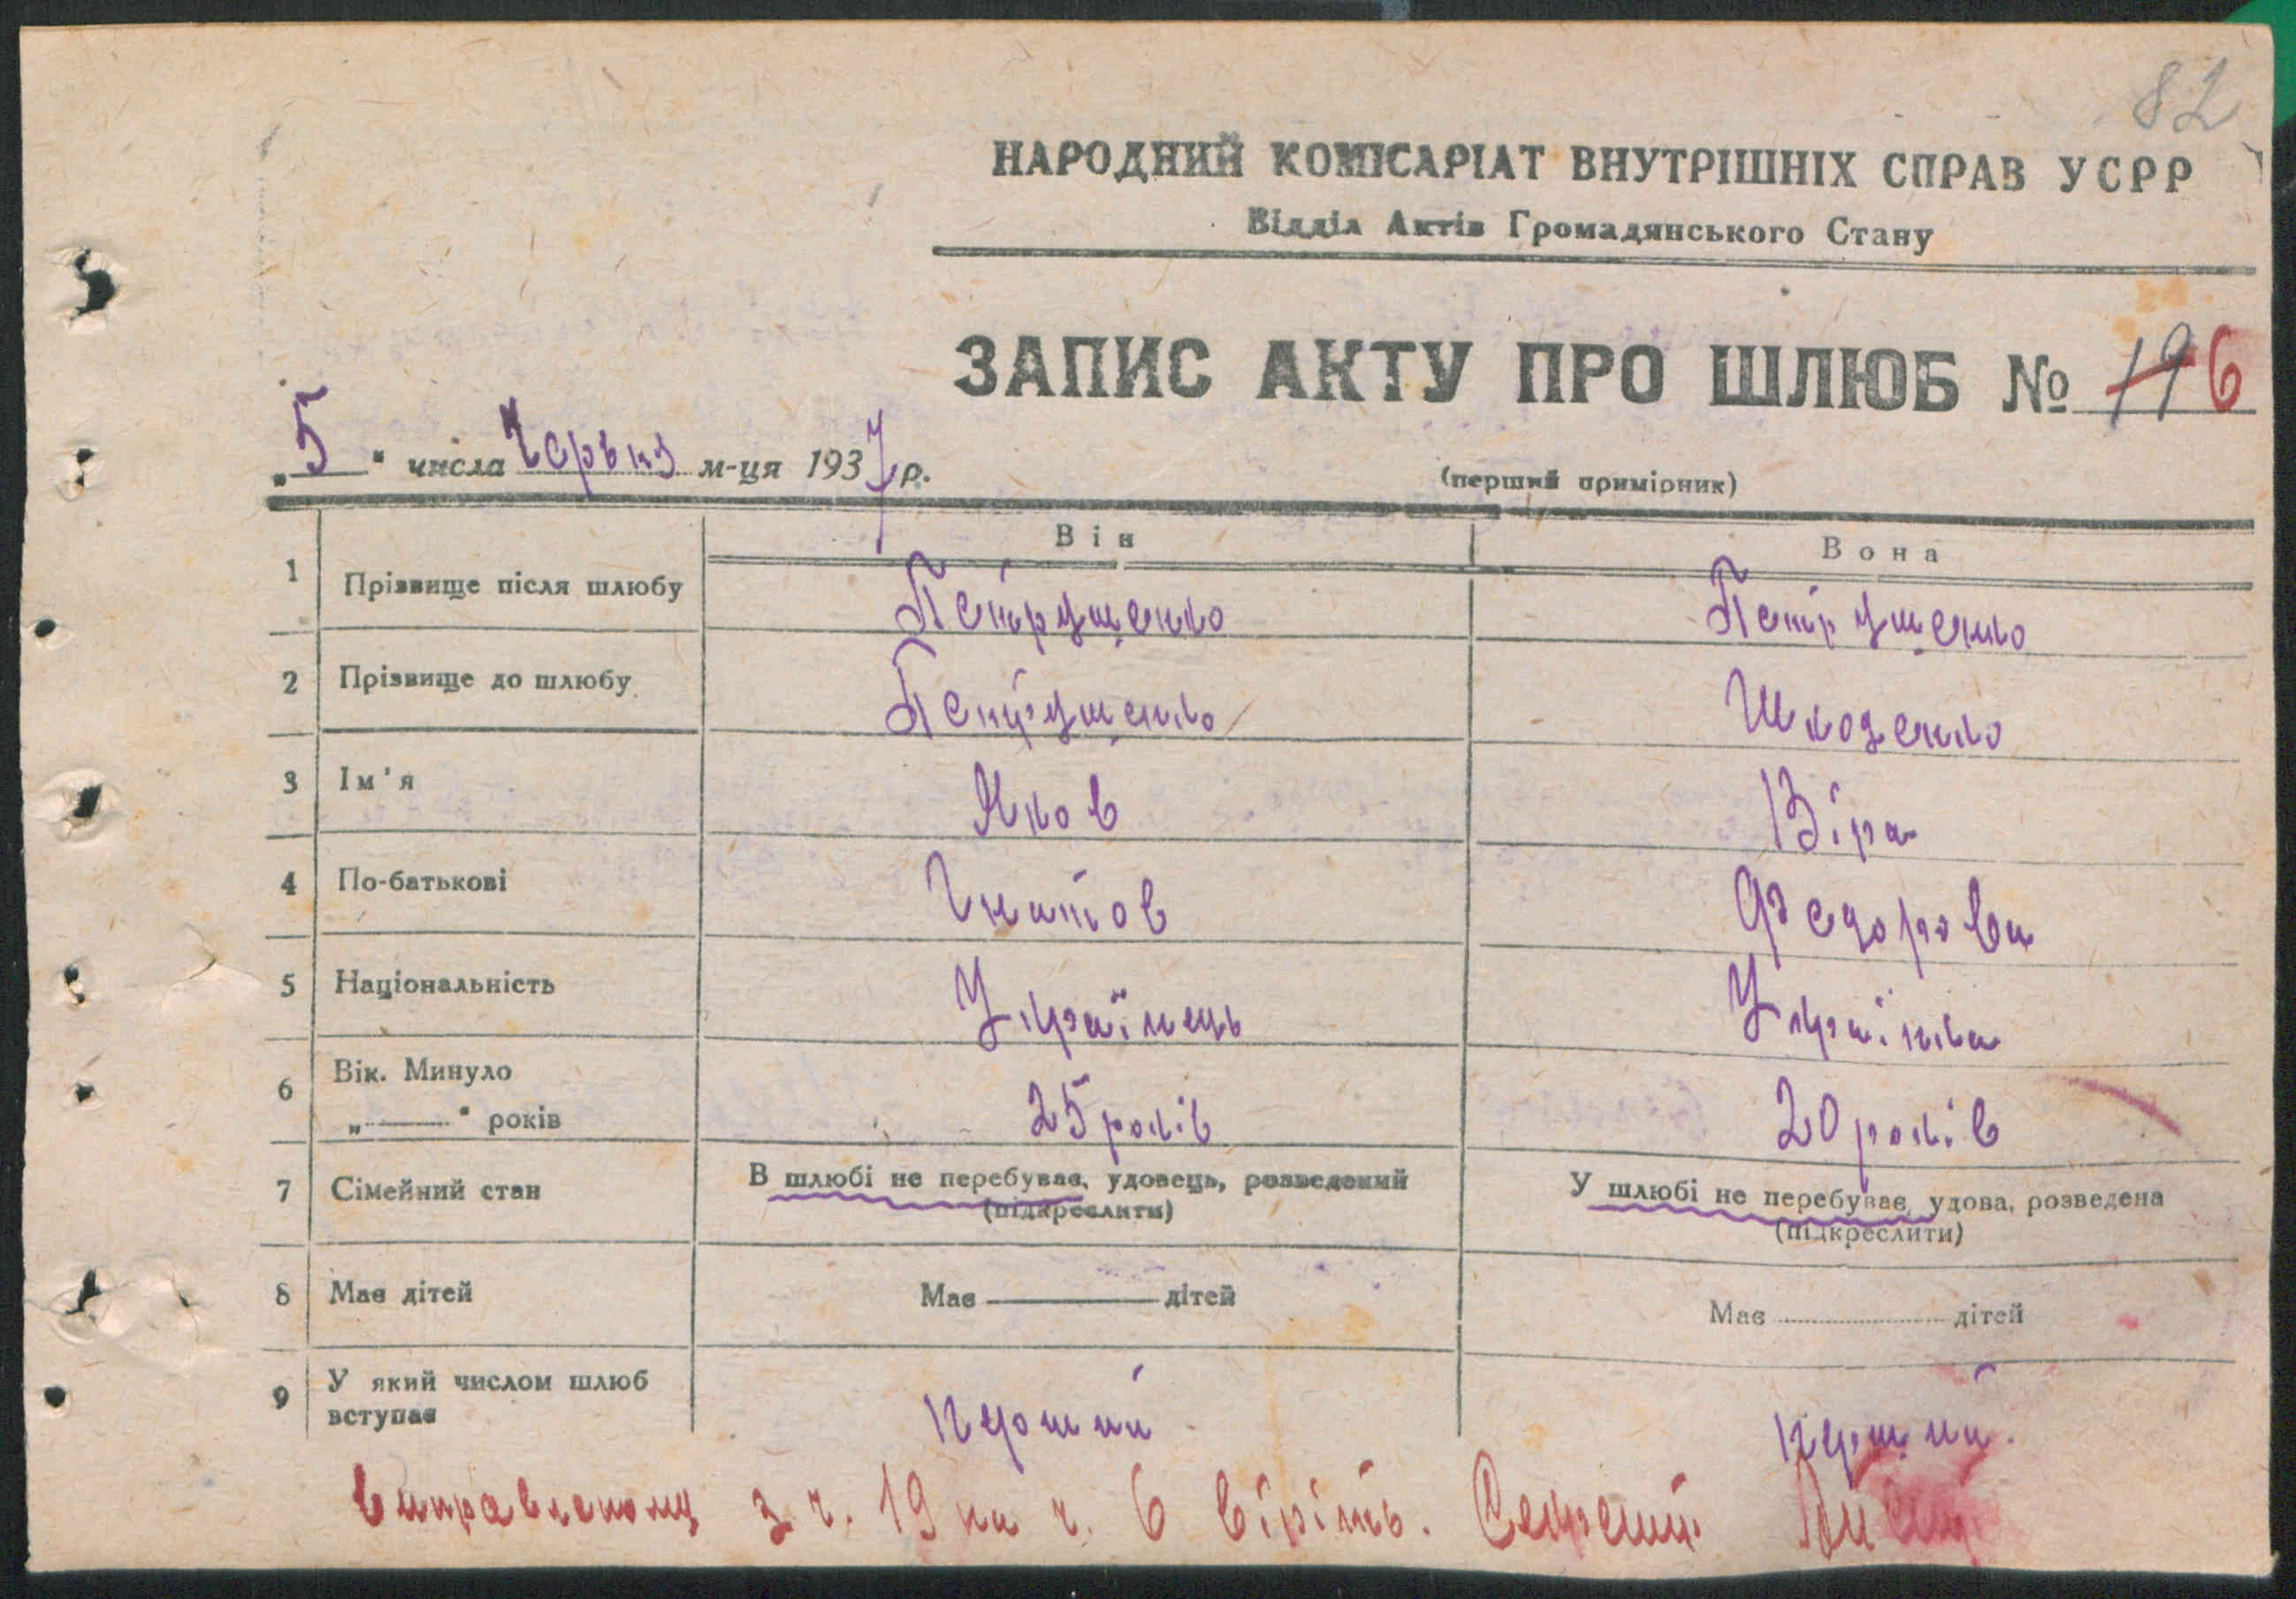 82
НАРОДНИЙ КОМІСАРІАТ ВНУТРІШНІХ СПРАВ УСРР
Відділ Актів Громадянського Стану
ЗАПИС АКТУ ПРО ШЛЮБ № 19 6
„5" числа Червня м-ця 1937 р.
(перший примірник)
Він Вона
1 Прізвище після шлюбу Петрущенко Петрущенко
2 Прізвище до шлюбу Петрущенко Шкоденко
3 Ім'я Яков Віра
4 По-батькові Гнатов Федорова
5 Національність Українець Українка
6 Вік. Минуло
„——" років 25 років 20 років
7 Сімейний стан В шлюбі не перебуває, удовець, розведений У шлюбі не перебуває, удова, розведена
(підкреслити) (підкреслити)
8 Має дітей Має —— дітей Має ........ дітей
9 У який числом шлюб
вступає перший перший.
Виправленому з ч. 19 на ч. 6 вірить.